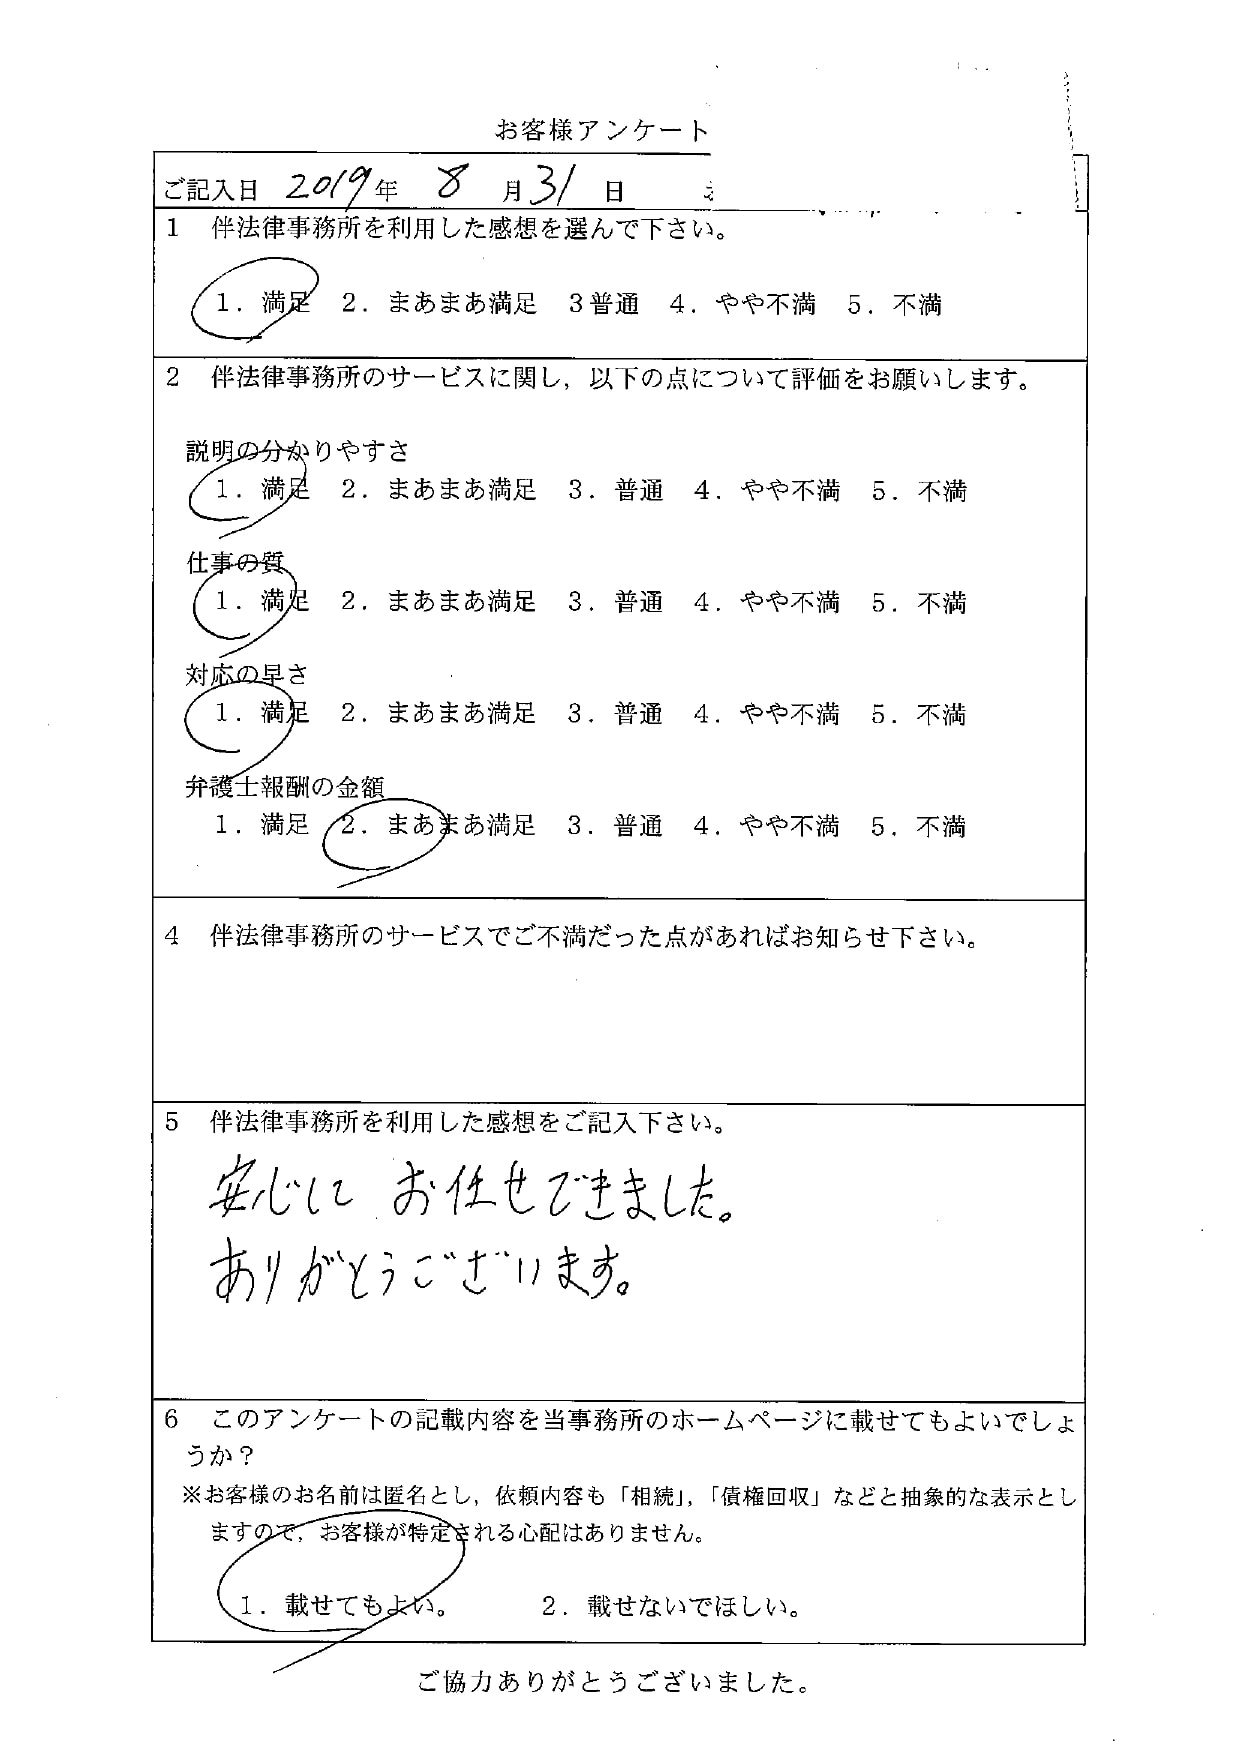 お客様アンケート
ご記入日 2019年 8 月 31 日
1 伴法律事務所を利用した感想を選んで下さい。
1. 満足 2. まあまあ満足 3普通 4. やや不満 5. 不満
2 伴法律事務所のサービスに関し，以下の点について評価をお願いします。
説明の分かりやすさ
1. 満足 2. まあまあ満足 3. 普通 4. やや不満 5. 不満
仕事の質
1. 満足 2. まあまあ満足 3. 普通 4. やや不満 5. 不満
対応の早さ
1. 満足 2. まあまあ満足 3. 普通 4. やや不満 5. 不満
弁護士報酬の金額
1. 満足 2. まあまあ満足 3. 普通 4. やや不満 5. 不満
4 伴法律事務所のサービスでご不満だった点があればお知らせ下さい。
5 伴法律事務所を利用した感想をご記入下さい。
安心して お任せできました。
ありがとうございます。
6 このアンケートの記載内容を当事務所のホームページに載せてもよいでしょ
うか？
※お客様のお名前は匿名とし，依頼内容も「相続」，「債権回収」などと抽象的な表示とし
ますので，お客様が特定される心配はありません。
1. 載せてもよい。 2. 載せないでほしい。
ご協力ありがとうございました。